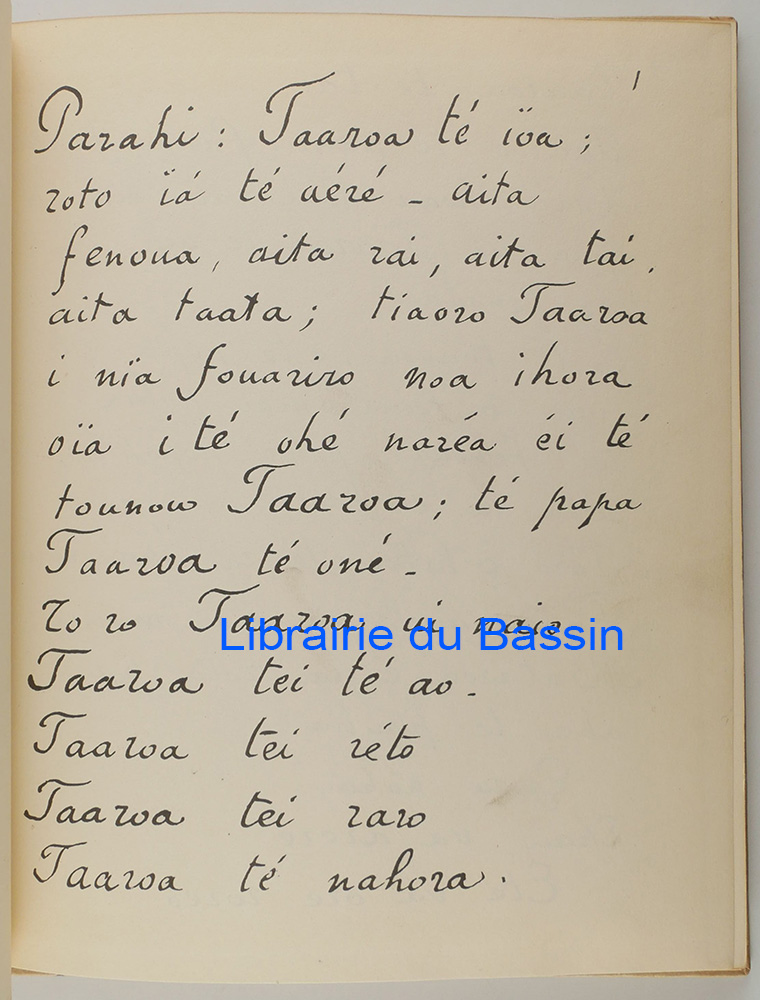 1
Parahi : Taaroa té ïoa ;
roto ïá té aéré _ aita
fenoua, aita rai, aita tai,
aita taata ; tiaoro Taaroa
i nïa fouariro noa ihora
oïa i té ohé naréa éi té
tounoü Taaroa ; té papa
Taaroa té oné _
To ro Taaroa
Librairie du Bassin
Taaroa tei té ao _
Taaroa tei réto
Taaroa tei raro
Taaroa té nahora .